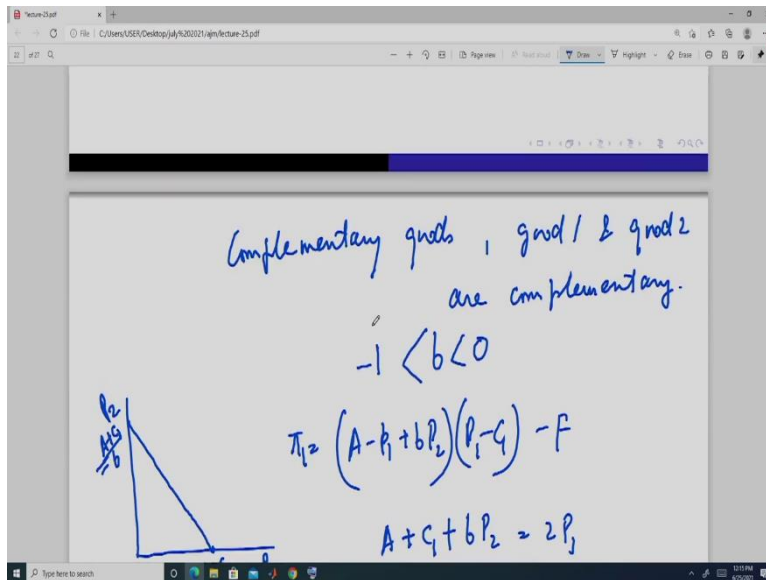 *lecture-25.pdf
File | C:/Users/USER/Desktop/july%202021/ajm/lecture-25.pdf
22 of 27
Page view | Read aloud | Draw Highlight Erase
Complementary goods, good 1 & good 2
are complementary.
-1 < b < 0
P2
A+C1
b
π1 = (A - P1 + bP2)(P1 - C1) - F
A + C1 + bP2 = 2P1
Type here to search
12:15 PM
6/25/2021